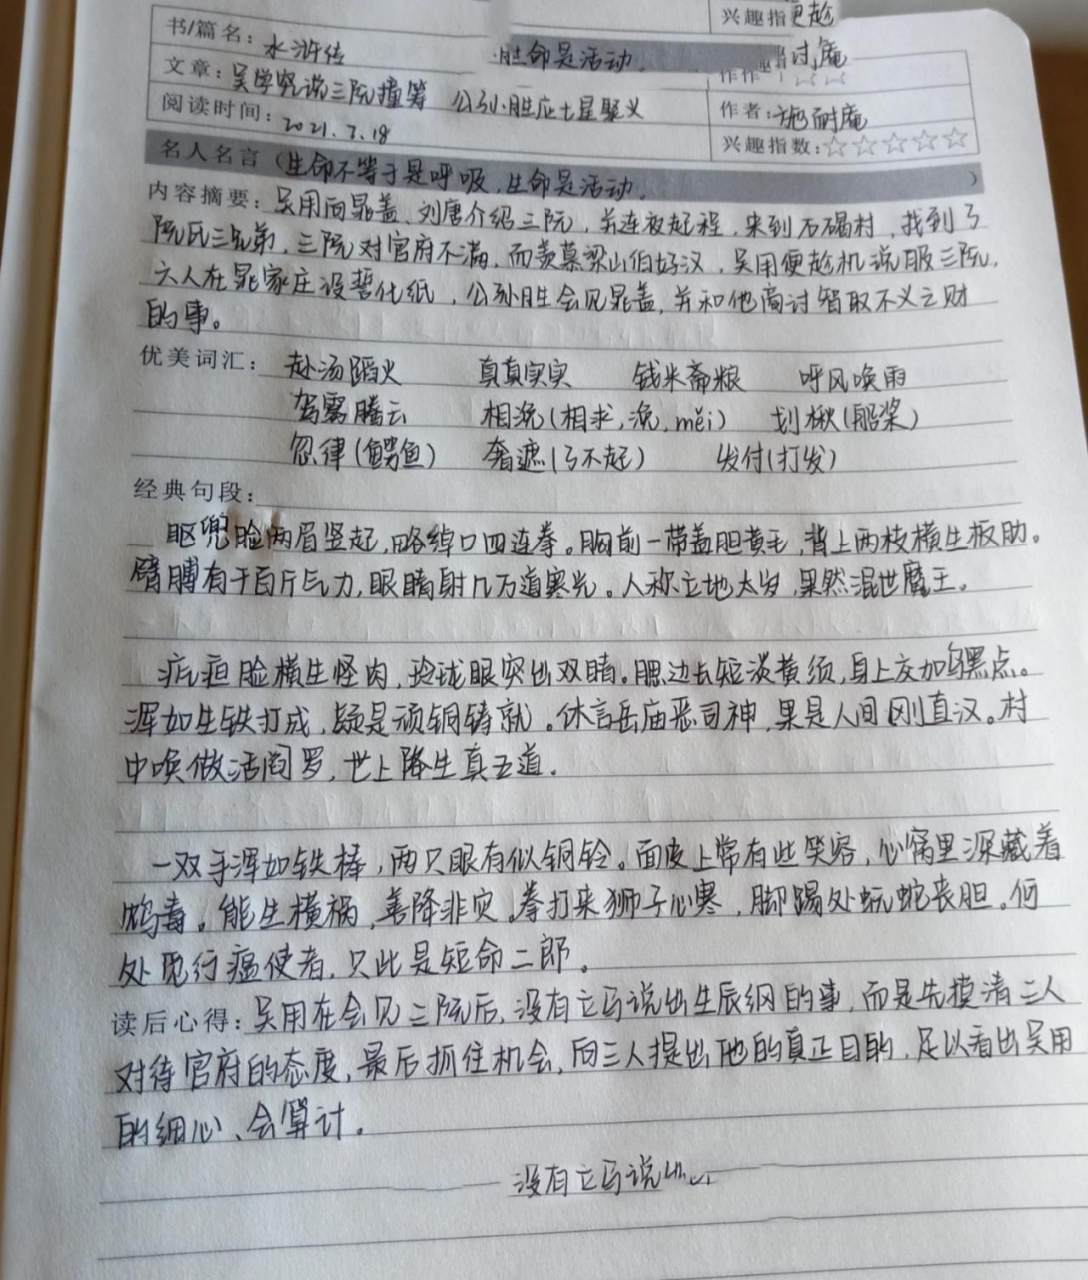 兴趣指
书/篇名：水浒传
胜命是活动.
文章：吴学究说三阮撞筹 公孙胜应七星聚义
作者：施耐庵
阅读时间：2021.7.18
兴趣指数：☆☆☆☆☆
名人名言（生命不等于是呼吸,生命是活动.）
内容摘要：吴用向晁盖、刘唐介绍三阮，并连夜起程，来到石碣村，找到了
阮氏三兄弟，三阮对官府不满，而羡慕梁山伯好汉，吴用便趁机说服三阮，
六人在晁家庄设誓化纸，公孙胜会见晁盖，并和他商讨智取不义之财
的事。
优美词汇：赴汤蹈火 真真实实 钱米斋粮 呼风唤雨
驾雾腾云 相浼(相求,浼,měi) 划楸(船桨)
忽律(鳄鱼) 奢遮(了不起) 发付(打发)
经典句段：
眍兜脸两眉竖起,略绰口四连拳。胸前一带盖胆黄毛,背上两枝横生板肋。
臂膊有千百斤气力,眼睛射几万道寒光。人称立地太岁,果然混世魔王。
疙疸脸横生怪肉,玲珑眼突出双睛。腮边长短淡黄须,身上交加乌黑点。
浑如生铁打成,疑是顽铜铸就。休言岳庙恶司神,果是人间刚直汉。村
中唤做活阎罗,世上降生真五道.
一双手浑如铁棒,两只眼有似铜铃。面皮上常有些笑容,心窝里深藏着
鸩毒。能生横祸,善降非灾。拳打来狮子心寒,脚踢处蚖蛇丧胆。何
处觅行瘟使者,只此是短命二郎。
读后心得：吴用在会见三阮后,没有立马说出生辰纲的事,而是先摸清三人
对待官府的态度,最后抓住机会,向三人提出他的真正目的,足以看出吴用
的细心、会算计。
没有立马说